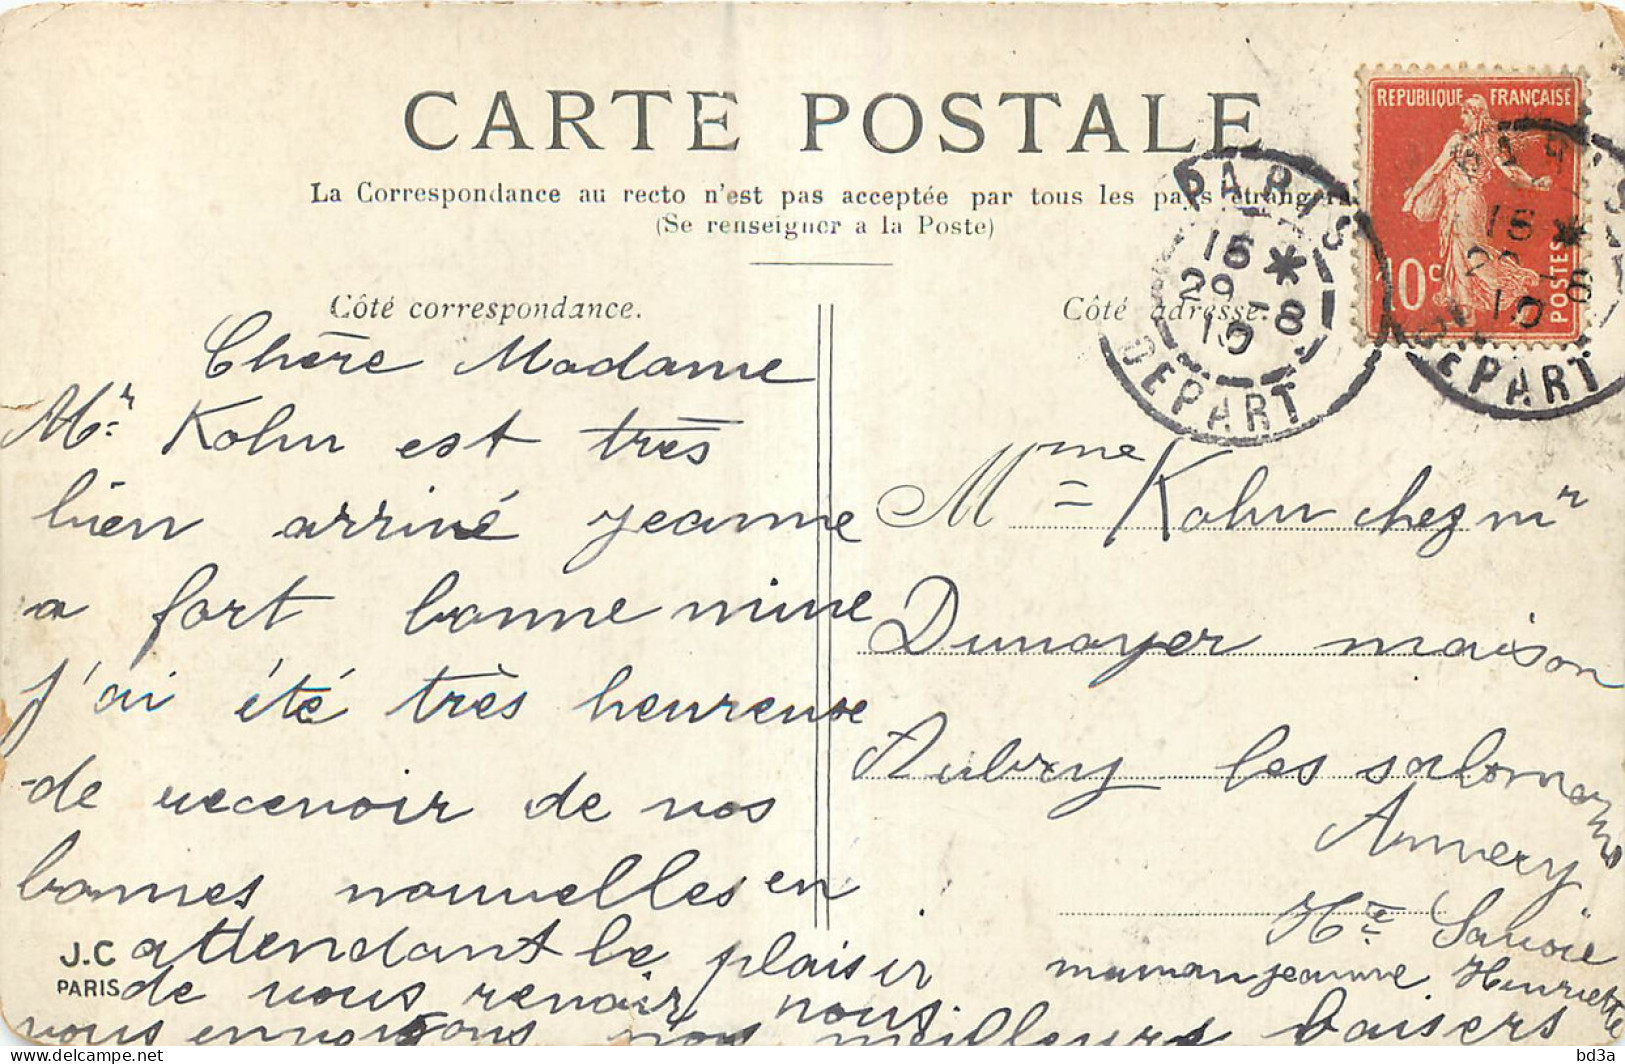 CARTE POSTALE
La Correspondance au recto n'est pas acceptée par tous les pays étrangers
(Se renseigner a la Poste)
Côté correspondance.
Côté adresse.
REPUBLIQUE FRANÇAISE
10c
POSTES
PARIS
16 *
29 - 8
10
DEPART
PARIS
16 *
29 - 8
10
DEPART
Chère Madame
Mr Kohn est très
bien arrivé jeanne
a fort bonne mine
j'ai été très heureuse
de recevoir de vos
bonnes nouvelles en
attendant le plaisir
de vous revoir nous
vous envoyons nos meilleurs baisers
maman jeanne Henriette
J.C
PARIS
Mme Kohn chez mr
Dunoyer maison
Aubry les salomons
Annecy
Hte Savoie
Delcampe.net
bd3a